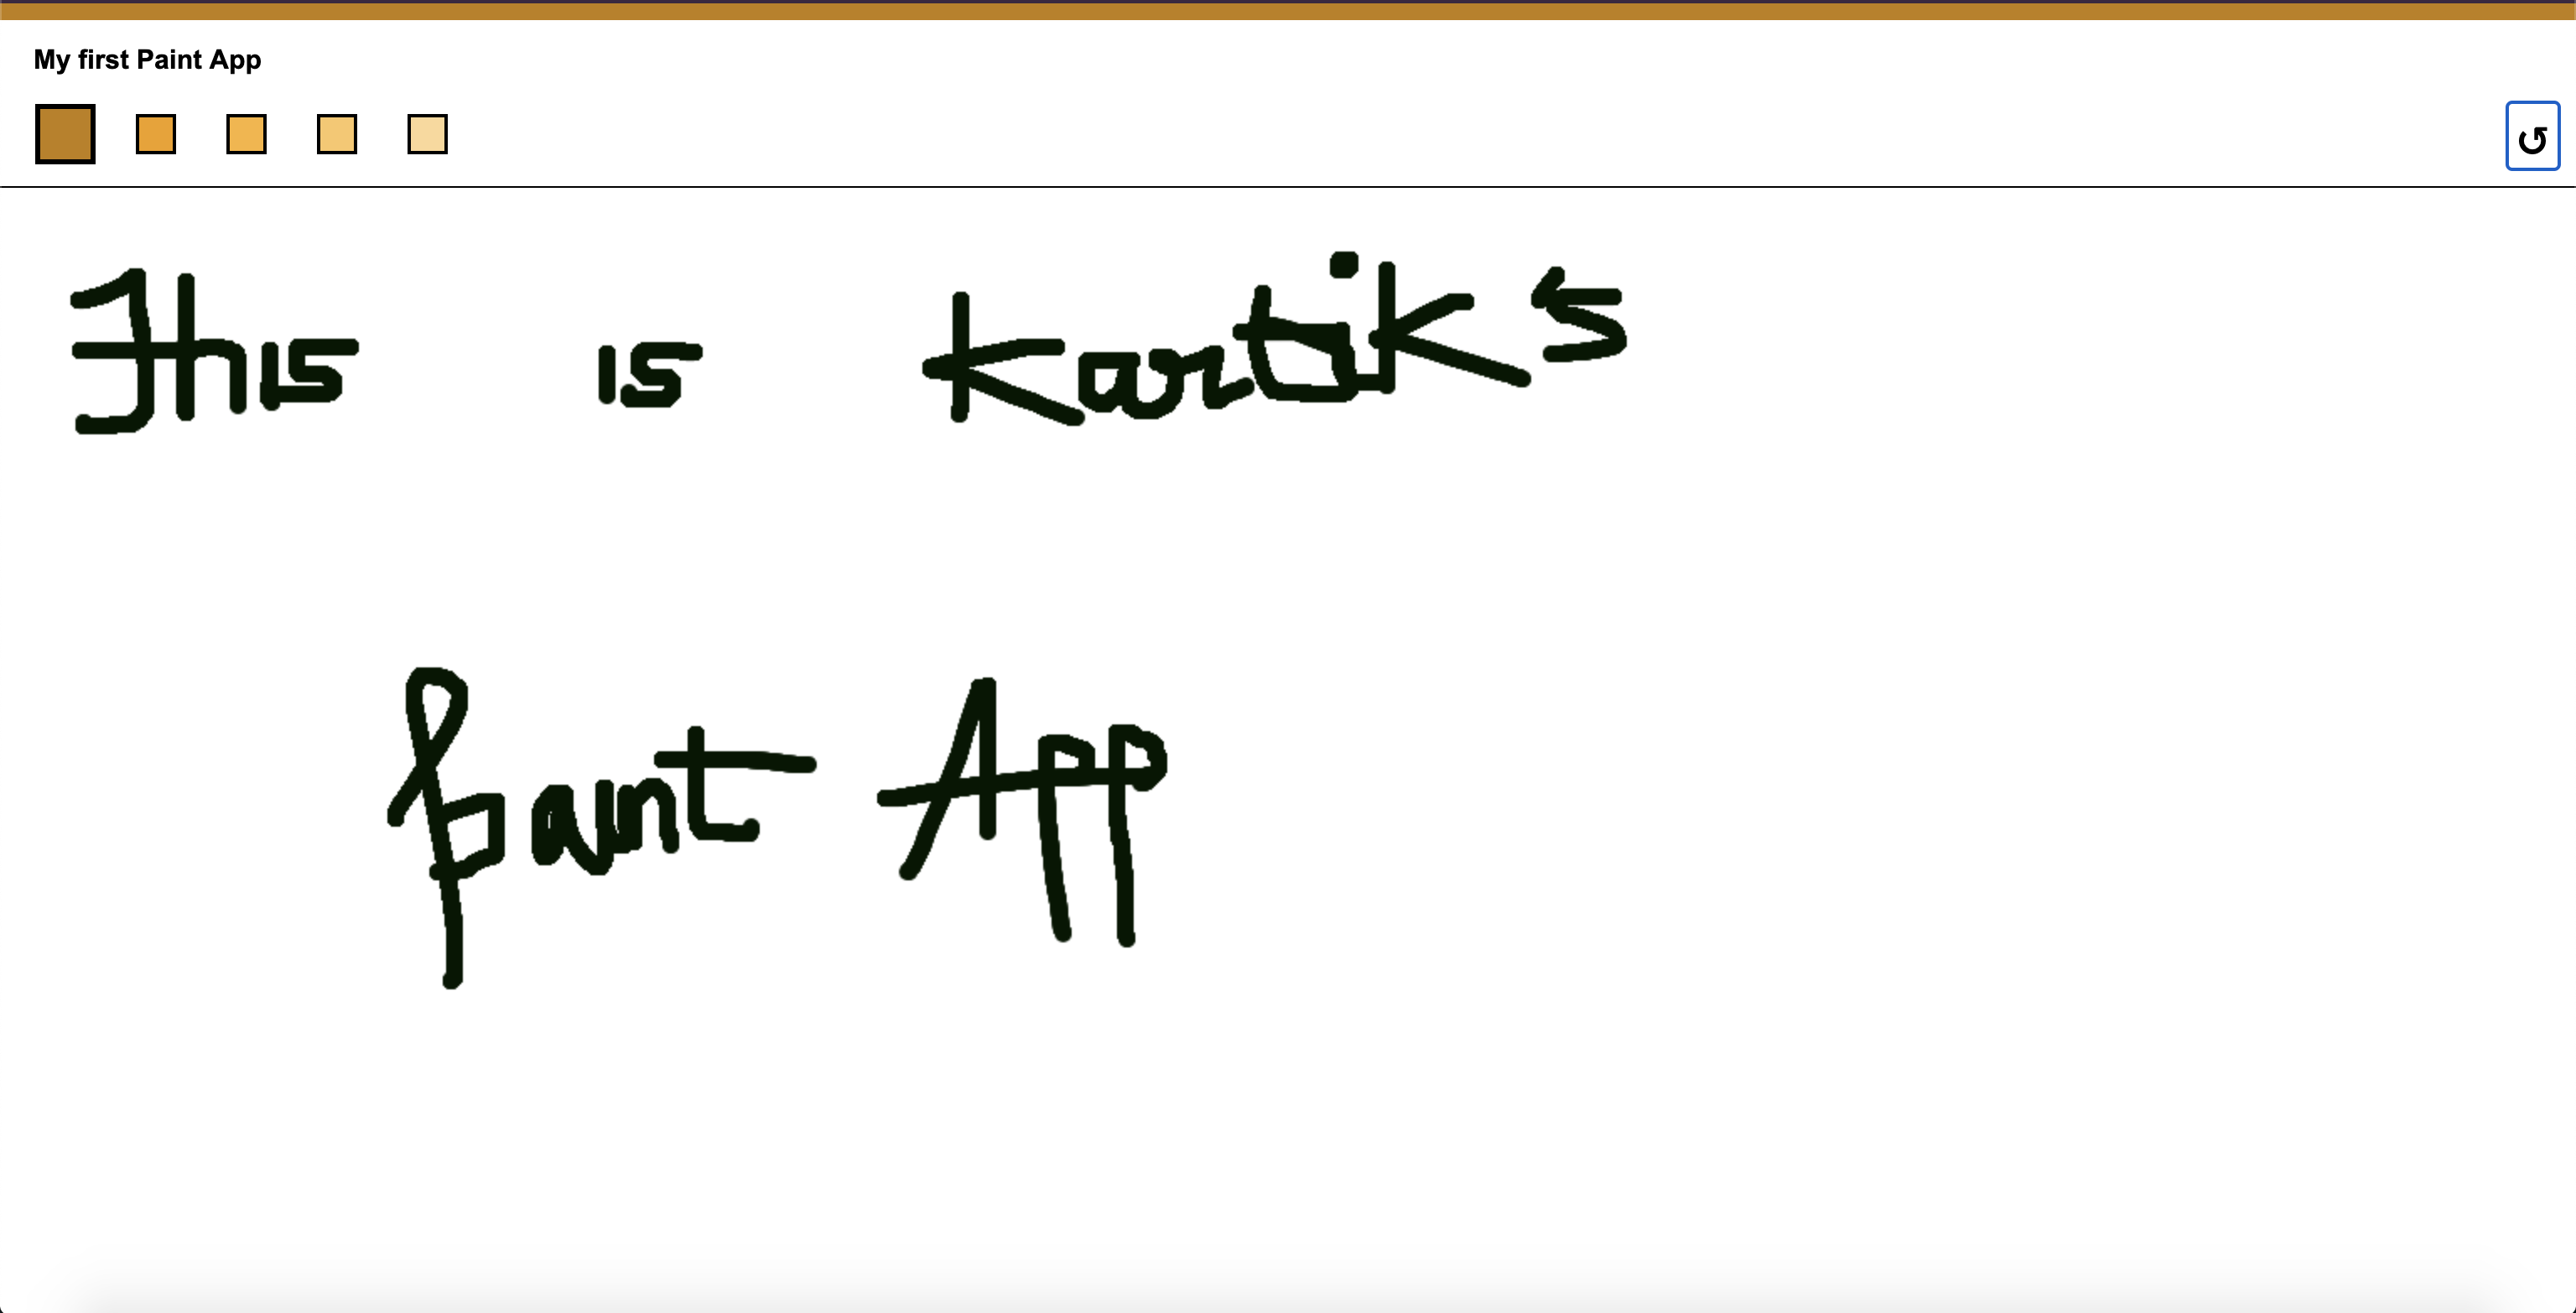 My first Paint App
↺
This is Kartik's
Paint App